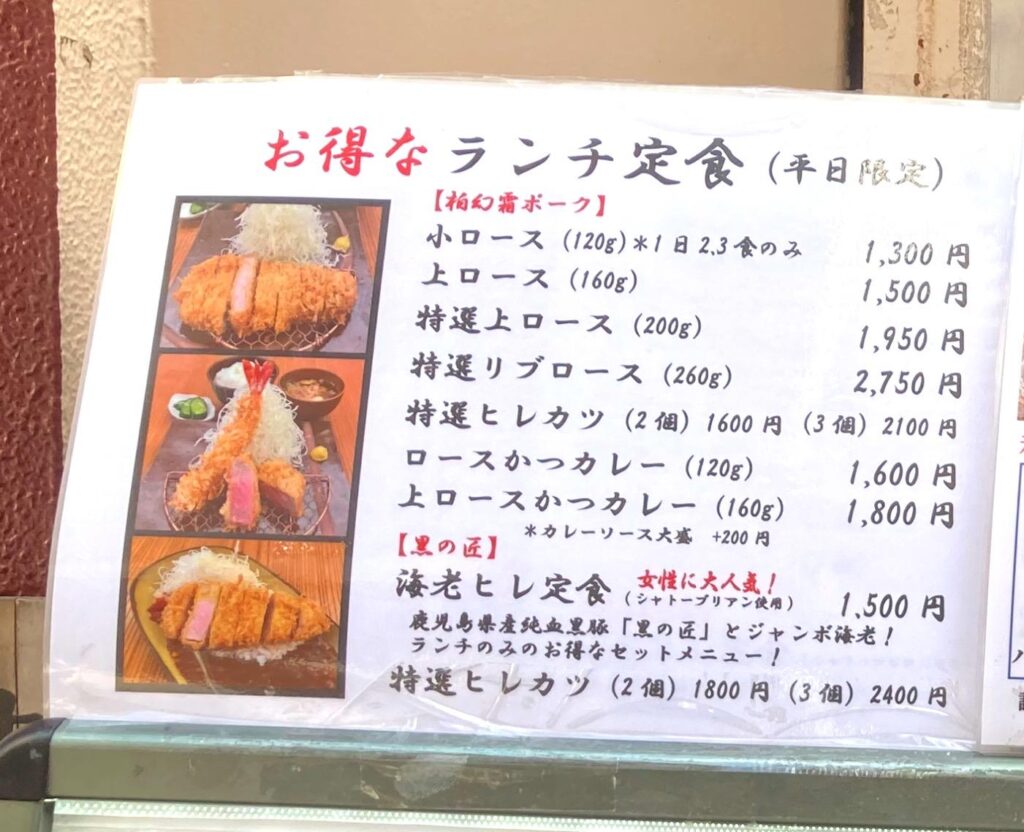 お得なランチ定食（平日限定）
【柏幻霜ポーク】
小ロース（120g）＊1日2,3食のみ 1,300円
上ロース（160g） 1,500円
特選上ロース（200g） 1,950円
特選リブロース（260g） 2,750円
特選ヒレカツ（2個）1600円（3個）2100円
ロースかつカレー（120g） 1,600円
上ロースかつカレー（160g） 1,800円
＊カレーソース大盛 +200円
【黒の匠】
海老ヒレ定食 女性に大人気！
（シャトーブリアン使用） 1,500円
鹿児島県産純血黒豚「黒の匠」とジャンボ海老！
ランチのみのお得なセットメニュー！
特選ヒレカツ（2個）1800円（3個）2400円